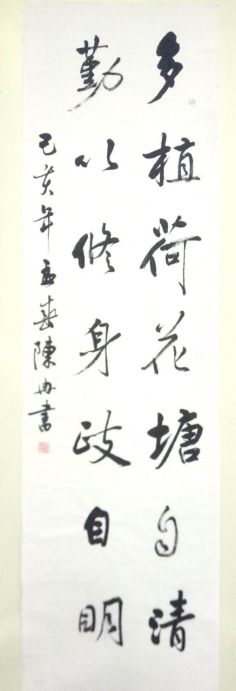 多植荷花塘自清
勤以修身政自明
己亥年孟春陳冉書